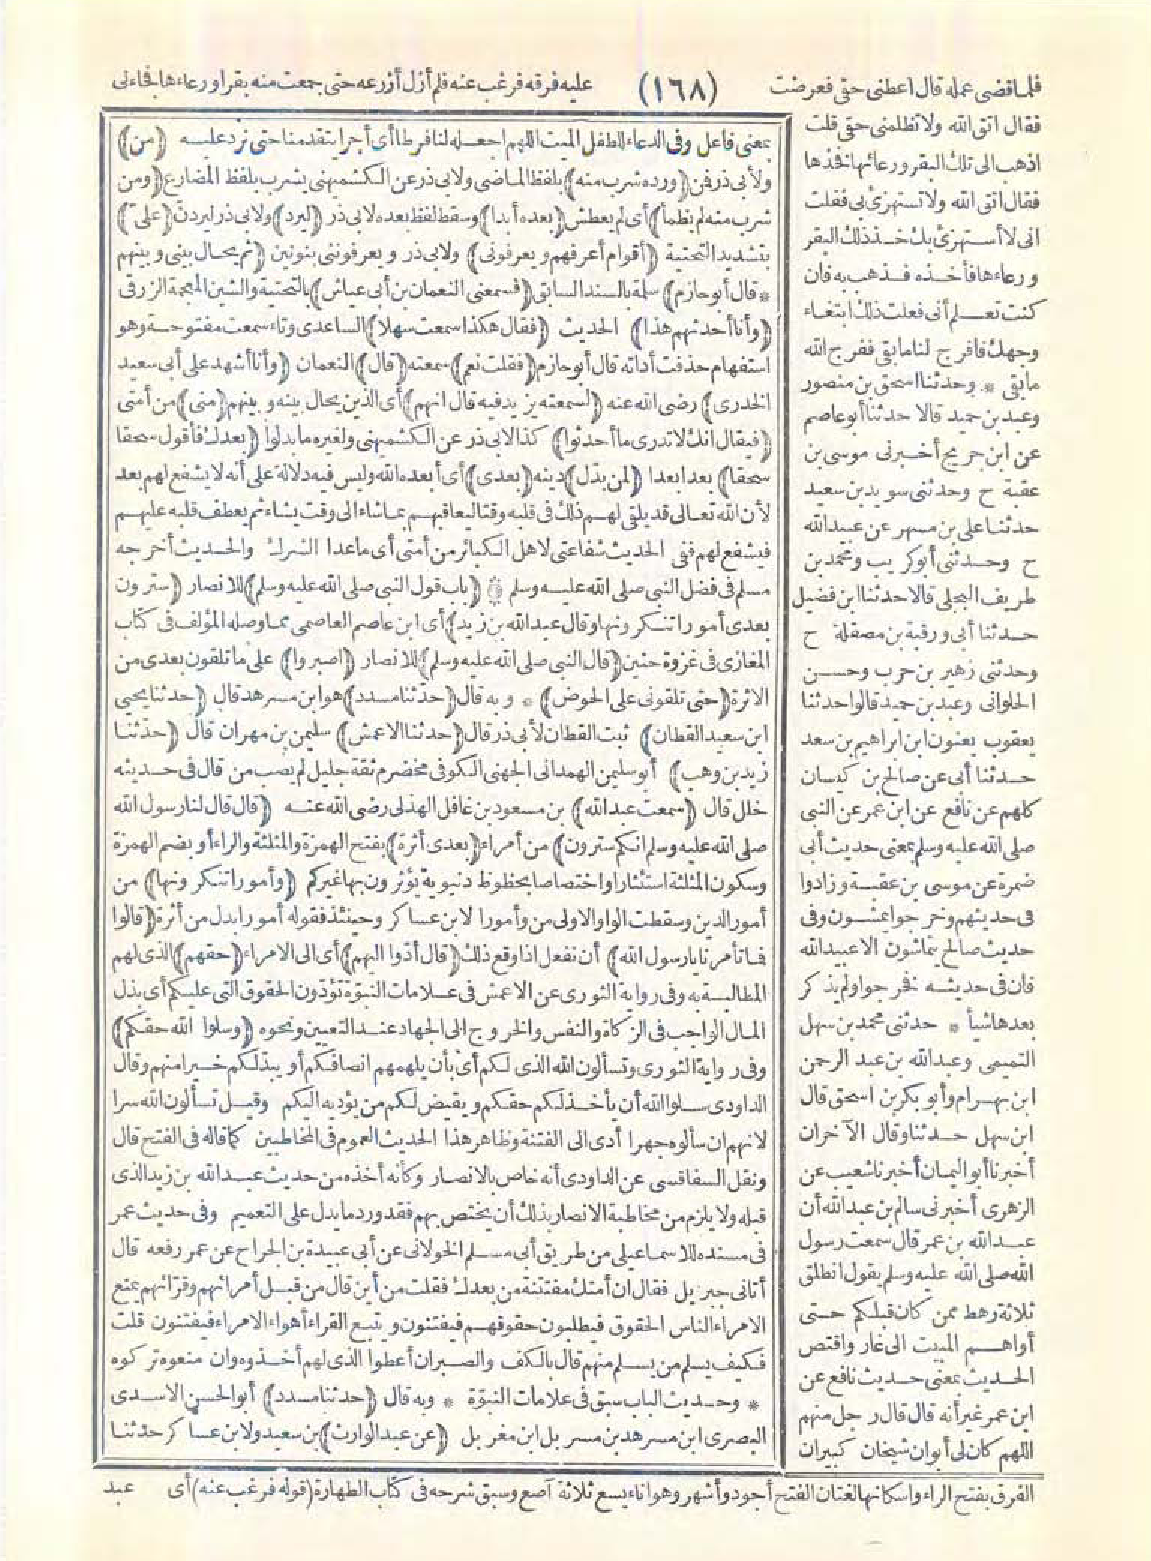 فلما قضى عمله قال اعطنى حقى فعرضت
(١٦٨)
عليه فرقه فرغب عنه فلم أزل أزرعه حتى جمعت منه بقرا ورعاءها فجاءنى
فقال اتق الله ولا تظلمنى حقى قلت
اذهب الى تلك البقر ورعائها فخذها
فقال اتق الله ولا تستهزئ بى فقلت
انى لا أستهزئ بك خذ ذلك البقر
ورعاءها فأخذه فذهب به فان
كنت تعلم أنى فعلت ذلك ابتغاء
وجهك فافرج لنا ما بقى ففرج الله
ما بقى * وحدثنا اسحق بن منصور
وعبد بن حميد قالا حدثنا أبو عاصم
عن ابن جريج أخبرنى موسى بن
عقبة ح وحدثنى سويد بن سعيد
حدثنا على بن مسهر عن عبيد الله
ح وحدثنى أبو كريب ومحمد بن
طريف البجلى قالا حدثنا ابن فضيل
حدثنا أبى ورقبة بن مصقلة ح
وحدثنى زهير بن حرب وحسن
الحلوانى وعبد بن حميد قالوا حدثنا
يعقوب يعنون ابن ابراهيم بن سعد
حدثنا أبى عن صالح بن كيسان
كلهم عن نافع عن ابن عمر عن النبى
صلى الله عليه وسلم بمعنى حديث أبى
ضمرة عن موسى بن عقبة وزادوا
فى حديثهم وخرجوا يمشون وفى
حديث صالح يتماشون الا عبيد الله
فان فى حديثه فخرجوا ولم يذكر
بعدها شيأ * حدثنى محمد بن سهل
التميمى وعبد الله بن عبد الرحمن
ابن بهرام وأبو بكر بن اسحق قال
ابن سهل حدثنا وقال الآخران
أخبرنا أبو اليمان أخبرنا شعيب عن
الزهرى أخبرنى سالم بن عبد الله أن
عبد الله بن عمر قال سمعت رسول
الله صلى الله عليه وسلم يقول انطلق
ثلاثة رهط ممن كان قبلكم حتى
أواهم المبيت الى غار واقتص
الحديث بمعنى حديث نافع عن
ابن عمر غير أنه قال قال رجل منهم
اللهم كان لى أبوان شيخان كبيران
بمعنى فاعل وفى الدعاء للطفل الميت اللهم اجعله لنا فرطا أى أجرا يتقدمنا حتى نرد عليه (من)
ولأبى ذر فن (ورده شرب منه) بلفظ الماضى ولابى ذر عن الكشميهنى يشرب بلفظ المضارع (ومن
شرب منه لم يظمأ) أى لم يعطش (بعده أبدا) وسقط لفظ بعده لابى ذر (ليرد) ولابى ذر ليردن (على)
بتشديد التحتية (أقوام أعرفهم ويعرفونى) ولابى ذر ويعرفوننى بنونين (ثم يحال بينى وبينهم
* قال أبو حازم) سلمة بالسند السابق (فسمعنى النعمان بن أبى عياش) بالتحتية والشين المعجمة الزرقى
(وأنا أحدثهم هذا) الحديث (فقال هكذا سمعت سهلا) الساعدى وتاء سمعت مفتوحة وهو
استفهام حذفت أداته قال أبو حازم (فقلت نعم) سمعته (قال) النعمان (وأنا أشهد على أبى سعيد
الخدرى) رضى الله عنه (لسمعته يزيد فيه قال انهم) أى الذين يحال بينه وبينهم (منى) من أمتى
(فيقال انك لا تدرى ما أحدثوا) كذا لابى ذر عن الكشميهنى ولغيره ما بدلوا (بعدك فأقول سحقا
سحقا) بعدا بعدا (لمن بدل) دينه (بعدى) أى أبعده الله وليس فيه دلالة على أنه لا يشفع لهم بعد
لأن الله تعالى قد يلقى لهم ذلك فى قلبه وقتا ليعاقبهم بما شاء الى وقت يشاء ثم يعطف قلبه عليهم
فيشفع لهم ففى الحديث شفاعتى لاهل الكبائر من أمتى أى ما عدا الشرك والحديث أخرجه
مسلم فى فضل النبى صلى الله عليه وسلم (باب قول النبى صلى الله عليه وسلم) للانصار (سترون
بعدى أمورا تنكرونها وقال عبد الله بن زيد) أى ابن عاصم العاصمى مما وصله المؤلف فى كتاب
المغازى فى غزوة حنين (قال النبى صلى الله عليه وسلم) للانصار (اصبروا) على ما تلقون بعدى من
الاثرة (حتى تلقونى على الحوض) * وبه قال (حدثنا مسدد) هو ابن مسرهد قال (حدثنا يحيى
ابن سعيد القطان) ثبت القطان لأبى ذر قال (حدثنا الاعمش) سليمن بن مهران قال (حدثنا
زيد بن وهب) أبو سليمن الهمدانى الجهنى الكوفى مخضرم ثقة جليل لم يصب من قال فى حديثه
خلل قال (سمعت عبد الله) بن مسعود بن غافل الهذلى رضى الله عنه (قال قال لنا رسول الله
صلى الله عليه وسلم انكم سترون) من أمراء (بعدى أثرة) بفتح الهمزة والمثلثة والراء أو بضم الهمزة
وسكون المثلثة استئثارا واختصاصا بحظوظ دنيوية يؤثرون بها غيركم (وأمورا تنكرونها) من
أمور الدين وسقطت الواو الاولى من وأمورا لابن عساكر وحينئذ فقوله أمورا بدل من أثرة (قالوا
فما تأمرنا يا رسول الله) أن نفعل اذا وقع ذلك (قال أدوا اليهم) أى الى الامراء (حقهم) الذى لهم
المطالبة به وفى رواية الثورى عن الاعمش فى علامات النبوة تؤدون الحقوق التى عليكم أى بذل
المال الواجب فى الزكاة والنفس والخروج الى الجهاد عند التعيين ونحوه (وسلوا الله حقكم)
وفى رواية الثورى وتسألون الله الذى لكم أى بأن يلهمهم انصافكم أو يبدلكم خيرا منهم وقال
الداودى سلوا الله أن يأخذ لكم حقكم ويقيض لكم من يؤديه اليكم وقيل تسألون الله سرا
لانهم ان سألوه جهرا أدى الى الفتنة وظاهر هذا الحديث العموم فى المخاطبين كما قاله فى الفتح قال
ونقل السفاقسى عن الداودى أنه خاص بالانصار وكأنه أخذه من حديث عبد الله بن زيد الذى
قبله ولا يلزم من مخاطبة الانصار بذلك أن يختص بهم فقد ورد ما يدل على التعميم وفى حديث عمر
فى مسنده للاسماعيلى من طريق أبى مسلم الخولانى عن أبى عبيدة بن الجراح عن عمر رفعه قال
أتانى جبريل فقال ان أمتك مفتتنة من بعدك فقلت من أين قال من قبل أمرائهم وقرائهم يمنع
الامراء الناس الحقوق فيطلبون حقوقهم فيفتنون ويتبع القراء أهواء الامراء فيفتنون قلت
فكيف يسلم من يسلم منهم قال بالكف والصبر ان أعطوا الذى لهم أخذوه وان منعوه تركوه
* وحديث الباب سبق فى علامات النبوة * وبه قال (حدثنا مسدد) أبو الحسن الاسدى
البصرى ابن مسرهد بن مسربل ابن مغربل (عن عبد الوارث) بن سعيد ولابن عساكر حدثنا
الفرق بفتح الراء واسكانها لغتان الفتح أجود وأشهر وهو اناء يسع ثلاثة آصع وسبق شرحه فى كتاب الطهارة (قوله فرغب عنه) أى
عبد